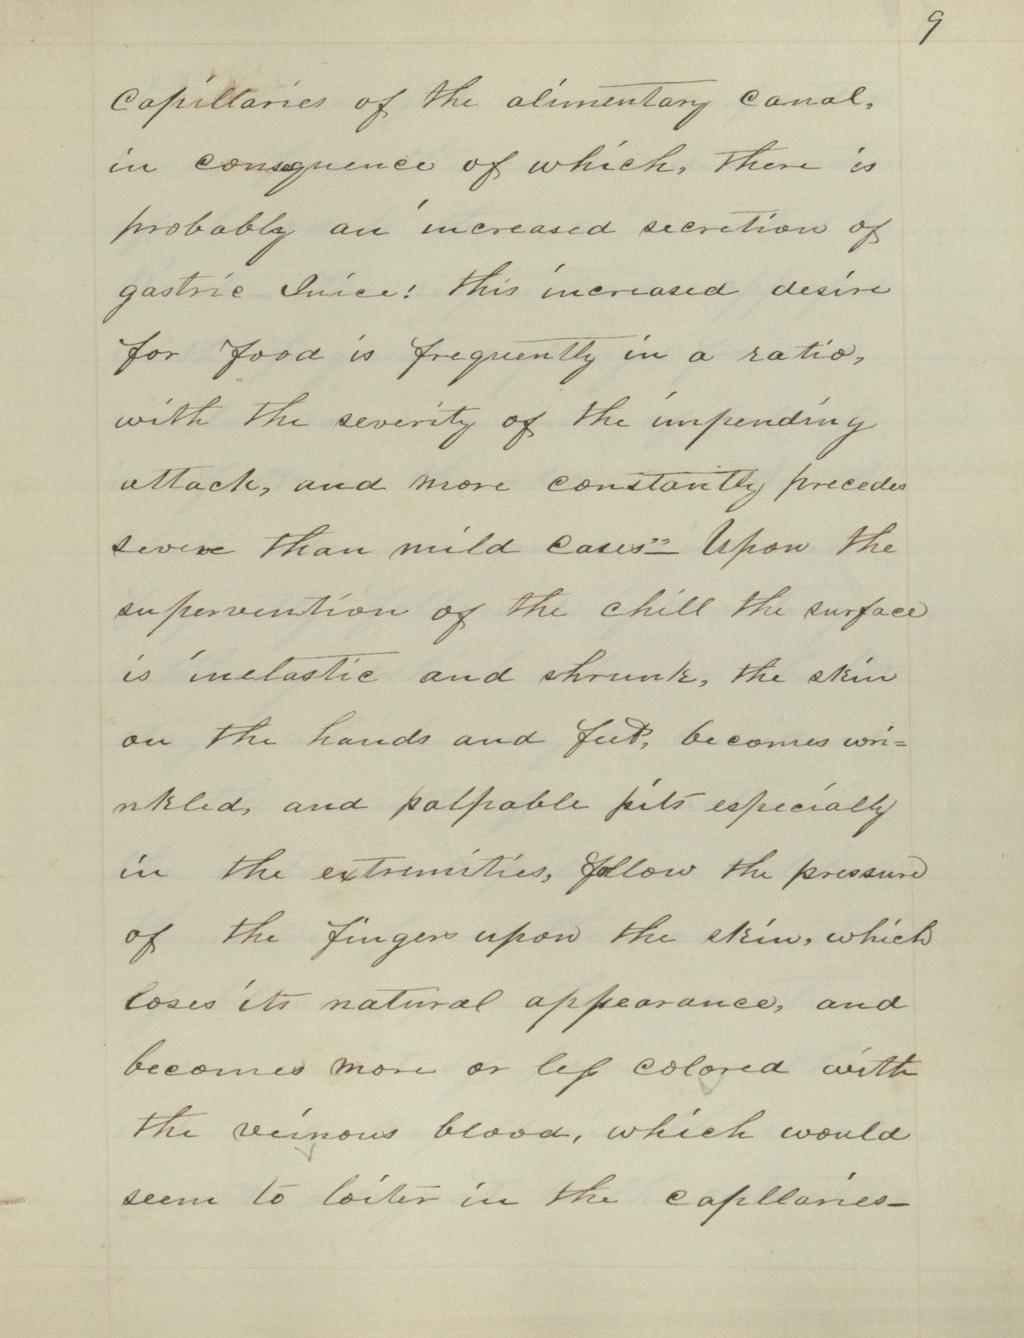 9
Capillaries of the alimentary canal,
in consequence of which, there is
probably an increased secretion of
gastric Juice! this increased desire
for food is frequently in a ratio,
with the severity of the impending
attack, and more constantly precedes
severe than mild cases" Upon the
supervention of the chill the surface
is inelastic and shrunk, the skin
on the hands and feet, becomes wri=
nkled, and palpable pits especially
in the extremities, follow the pressure
of the fingers upon the skin, which
loses its natural appearance, and
becomes more or less colored with
the veinous blood, which would
seem to loiter in the capllaries—